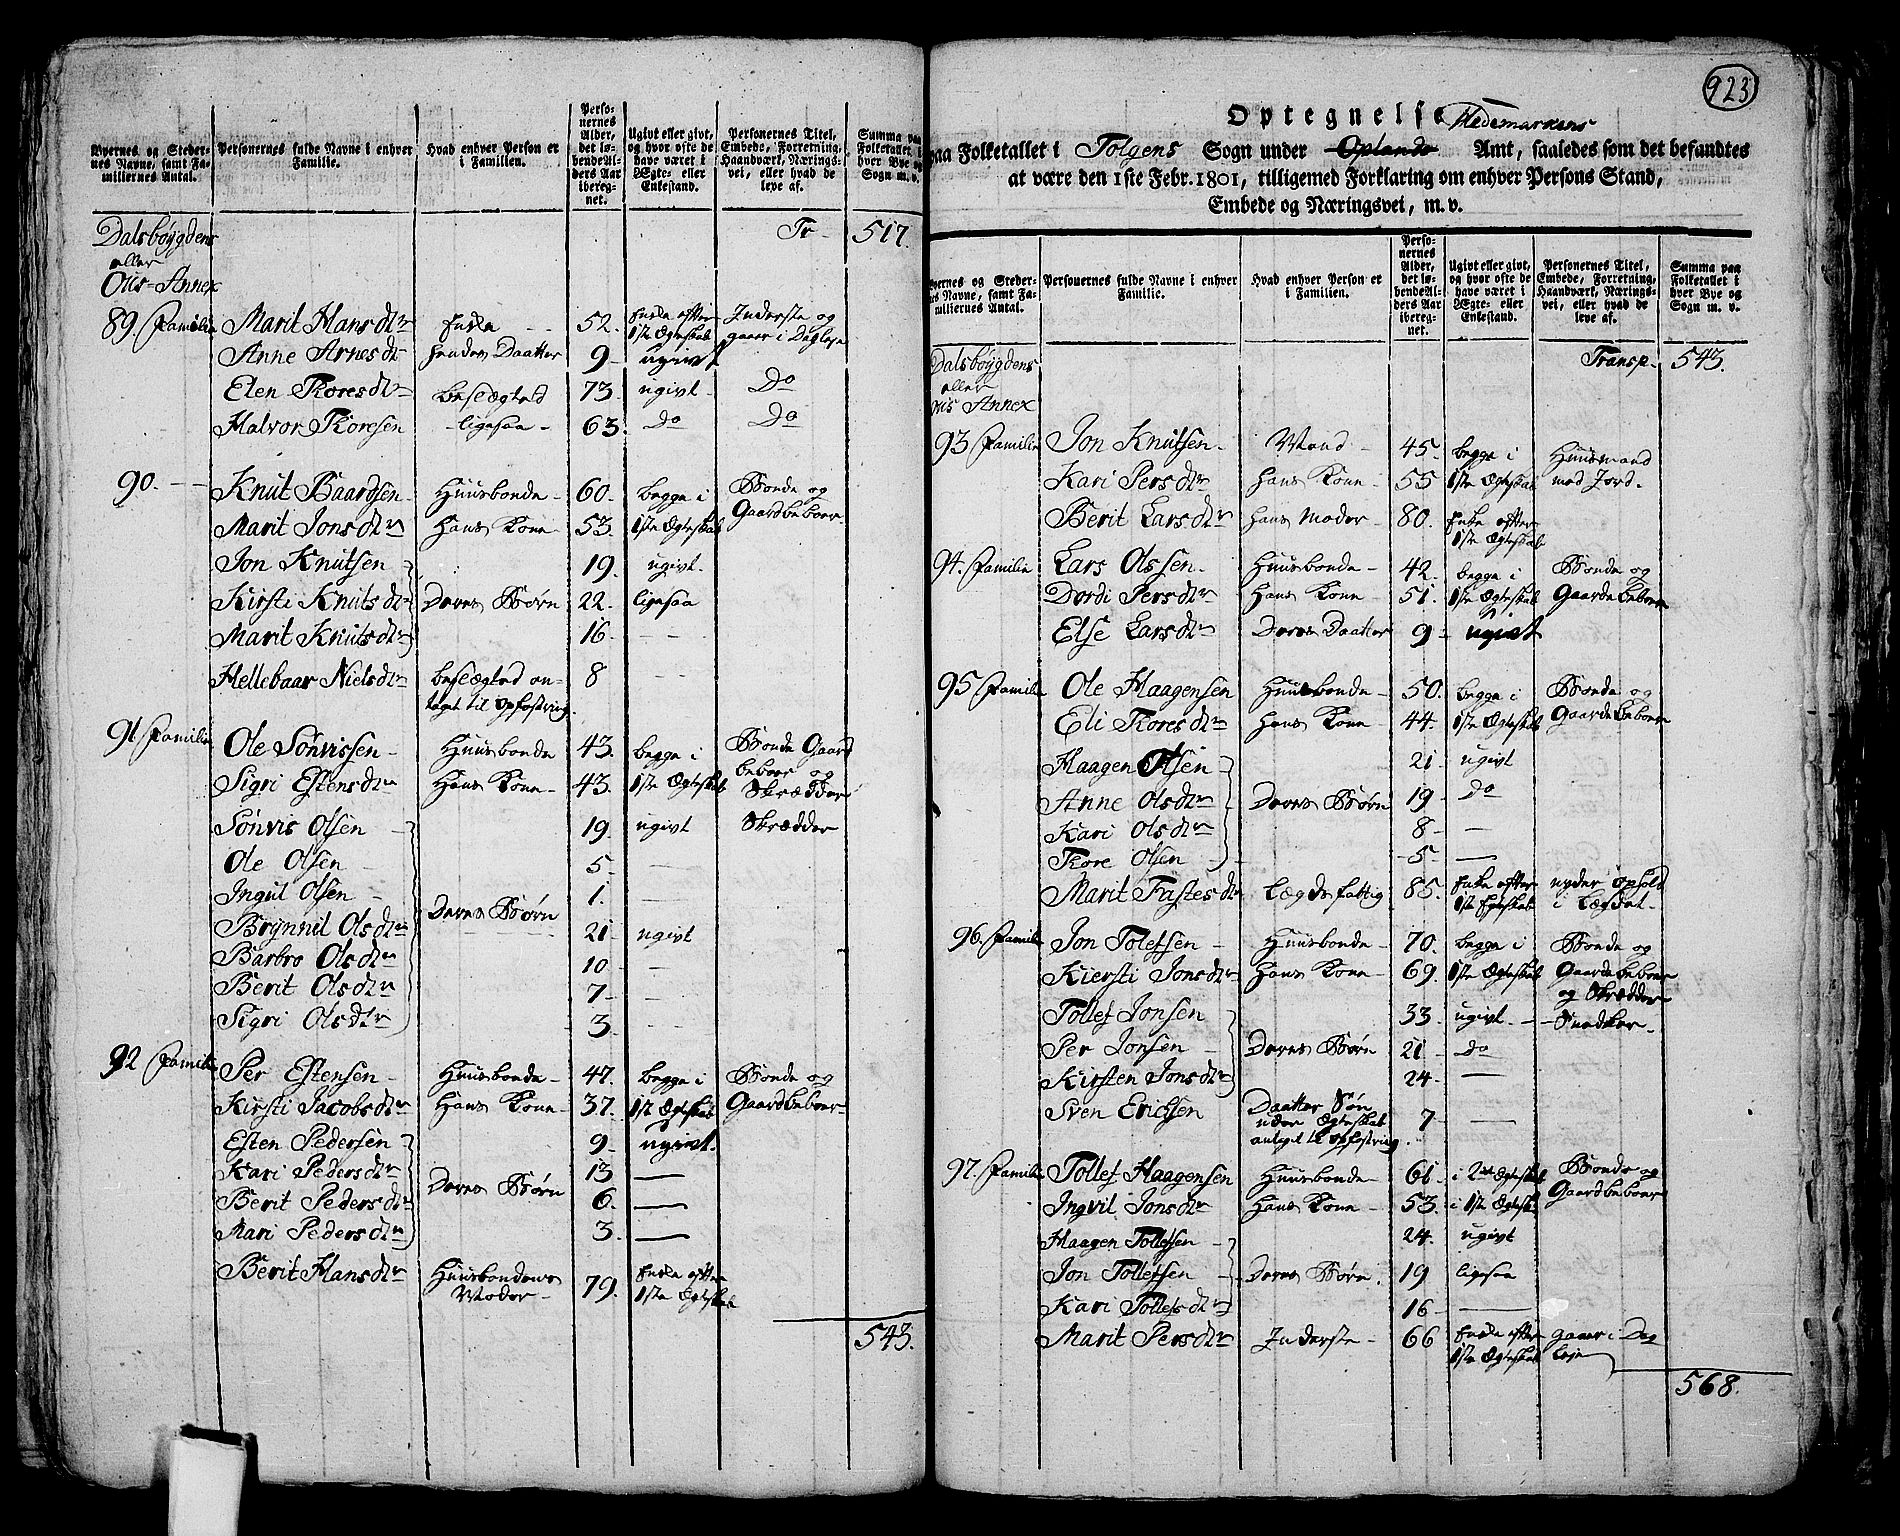 Byernes og Stedernes Navne, samt Familiernes Antal. | Personernes fulde Navne i enhver Familie. | Hvad enhver Person er i Familien. | Personernes Alder, det løbende Alders Aar iberegnet. | Ugivt eller givt, og hvor ofte de have været i Ægte- eller Enkestand. | Personernes Titel, Embede, Forretning, Haandværk, Næringsvei, eller hvad de leve af. | Summa paa Folketallet i hver Bye og Sogn m. v.
Dalsbøygdens | Tr- | 517.
eller
Øus-Annex
89. Familie | Marit Hansdtr | Enke - - | 52. | Enke efter 1ste Ægteskab | Inderste og gaaer i Dagleje
Anne Arnesdtr | hendes Daatter | 9- | ugivt
Elen Toresdtr | besægted | 73. | ugivt- | Do
Halvor Toresen | -ligesaa- | 63. | Do | Do
90. - - | Knut Baardsen- | Huusbonde- | 60. | begge i | Bonde og
Marit Jonsdtr | Hans Kone- | 53. | 1ste Ægteskab | Gaardbeboer.
Jon Knutsen | 19. | ugivt.
Kirsti Knutsdtr | Deres Børn | 22. | ligesaa
Marit Knutsdtr | 16- | - -
Hellebaar Nielsdtr | besægted an- | 8 | - -
taget til Opfostring.
91. Familie | Ole Sønvissen- | Huusbonde | 43. | begge i | Bonde Gaard
Sigri Estensdtr | Hans Kone- | 43. | 1ste Ægteskab | beboer og Skrædder
Sønvis Olsen - | 19. | ugivt | Skrædder
Ole Olsen - | 5- | —
Ingul Olsen - | 1. | —
Brynnil Olsdtr | Deres Børn | 21- | ugivt
Barbro Olsdtr | 10- | —
Berit Olsdtr | 7- | —
Sigri Olsdtr | 3. | - -
92 Familie | Per Estensen- | Huusbonde- | 47. | begge i | Bonde og
Kirsti Jacobsdtr | Hans Kone- | 37. | 1ste Ægteskab | Gaardbeboer-
Esten Pedersen | 9- | ugivt.
Kari Pedersdtr | Deres Børn | 13 | —
Berit Pedersdtr | 6. | —
Mari Pedersdtr | 3. | —
Berit Hansdtr | Huusbondens Moder- | 79. | Enke efter 1ste Ægteskab
543.
923
Optegnelse Hedemarkens
paa Folketallet i Tolgens Sogn under Oplands Amt, saaledes som det befandtes
at være den 1ste Febr. 1801, tilligemed Forklaring om enhver Persons Stand,
Embede og Næringsvei, m. v.
Byernes og Stedernes Navne, samt Familiernes Antal. | Personernes fulde Navne i enhver Familie. | Hvad enhver Person er i Familien. | Personernes Alder, det løbende Alders Aar iberegnet. | Ugivt eller givt, og hvor ofte de have været i Ægte- eller Enkestand. | Personernes Titel, Embede, Forretning, Haandværk, Næringsvei, eller hvad de leve af. | Summa paa Folketallet i hver Bye og Sogn m. v.
Dalsbøygdens | Transp. | 543.
eller
Øus Annex
93 Familie | Jon Knutsen- | Mand - | 45. | begge i | Huusmand
Kari Persdtr | hans Kone- | 55 | 1ste Ægteskab | med Jord.
Berit Larsdtr | hans Moder- | 80. | Enke efter 1ste Ægteskab
94. Familie | Lars Olssen- | Huusbonde- | 42. | begge i | Bonde og
Dordi Persdtr | Hans Kone- | 51. | 1ste Ægteskab | Gaardebeboer
Else Larsdtr | Deres Daatter | 9- | ugivt
95 Familie | Ole Haagensen | Huusbonde- | 50. | begge i | Bonde og
Eli Toresdtr | hans Kone- | 44. | 1ste Ægteskab | Gaardebeboer
Haagen Olsen - | 21- | ugivt
Anne Olsdtr | Deres Børn | 19 - | Do
Kari Olsdtr | 8- | —
Tore Olsen - | -5- | —
Marit Fastesdtr | Lægdsfattig | 85. | Enke efter 1ste Egteskab | nyder Ophold i Lægdet-
96. Familie | Jon Tolefsen - | Huusbonde- | 70. | begge i | Bonde og
Kiersti Jonsdtr | Hans Kone- | 69. | 1ste Ægteskab | Gaardebeboer og Skrædder
Tollef Jonsen | 33. | ugivt- - | -Snedker-
Per Jonsen - | Deres Børn | 21- | Do
Kirsten Jonsdtr | 24- | —
Sven Ericksen | Daatter Søn uden Ægteskab antaget til Opfostring. | 7- | —
97. Familie | Tollef Haagensen | Huusbonde- | 61- | i 2det Ægteskab | Bonde og
Ingvil Jonsdtr | Hans Kone- | 53. | i 1ste Ægtesk. | Gaardbeboer
Haagen Tollefsen - | 24. | ugivt
Jon Tollefsen - | Deres Børn. | 19 | ligesaa
Kari Tollefsdtr | 16- | —
Marit Persdtr | Inderste- | 66 | Enke efter 1ste Ægteskab | gaaer i Dag Leje
568.